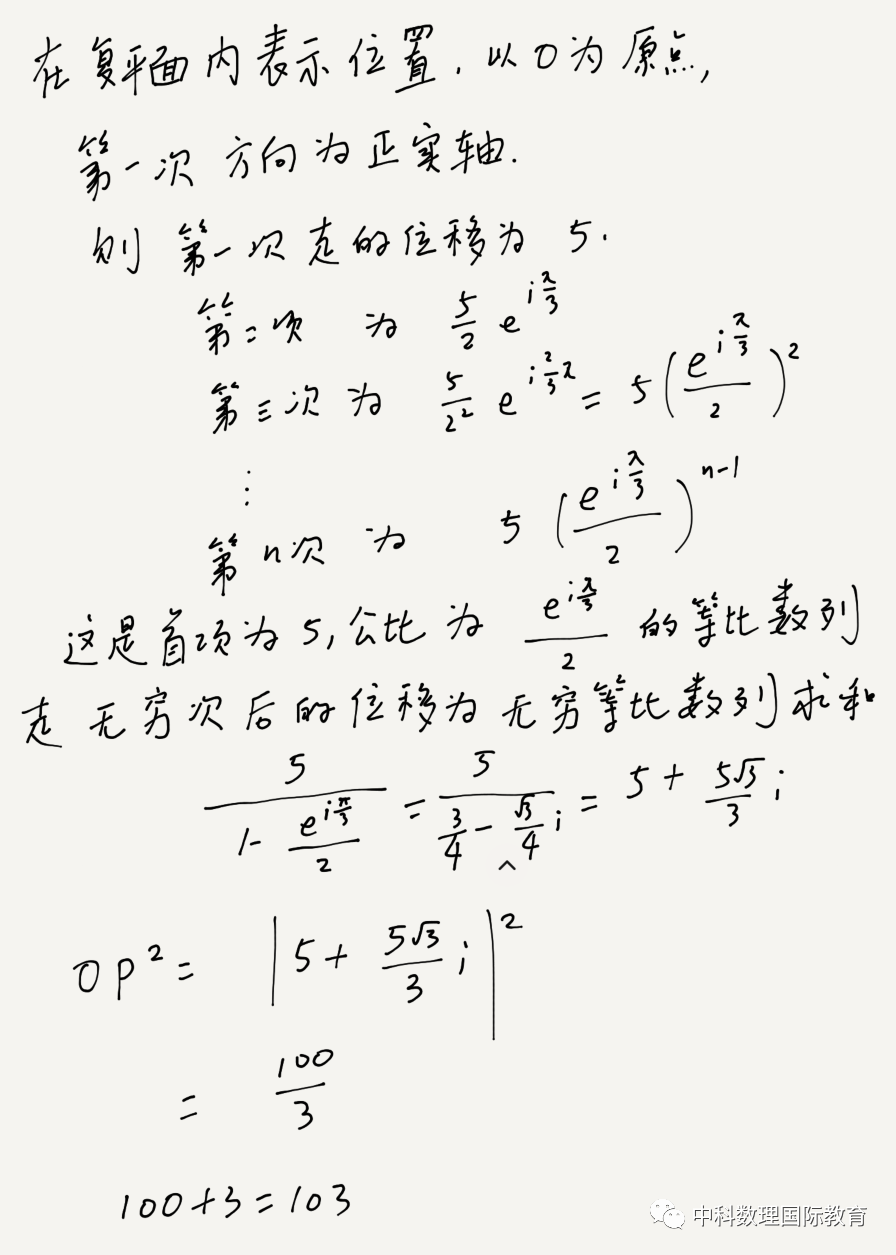 在复平面内表示位置. 以O为原点,
第一次方向为正实轴.
则第一次走的位移为 5.
第二次 为 5/2 e^{iπ/3}
第三次为 5/2² e^{i2/3π} = 5(e^{iπ/3}/2)²
⋮
第n次 为 5(e^{iπ/3}/2)^{n-1}
这是首项为5,公比为 e^{iπ/3}/2 的等比数列
走无穷次后的位移为无穷等比数列求和
5/(1- e^{iπ/3}/2) = 5/(3/4 - √3/4 i) = 5 + 5√3/3 i
OP² = |5 + 5√3/3 i|²
= 100/3
100+3=103
中科数理国际教育